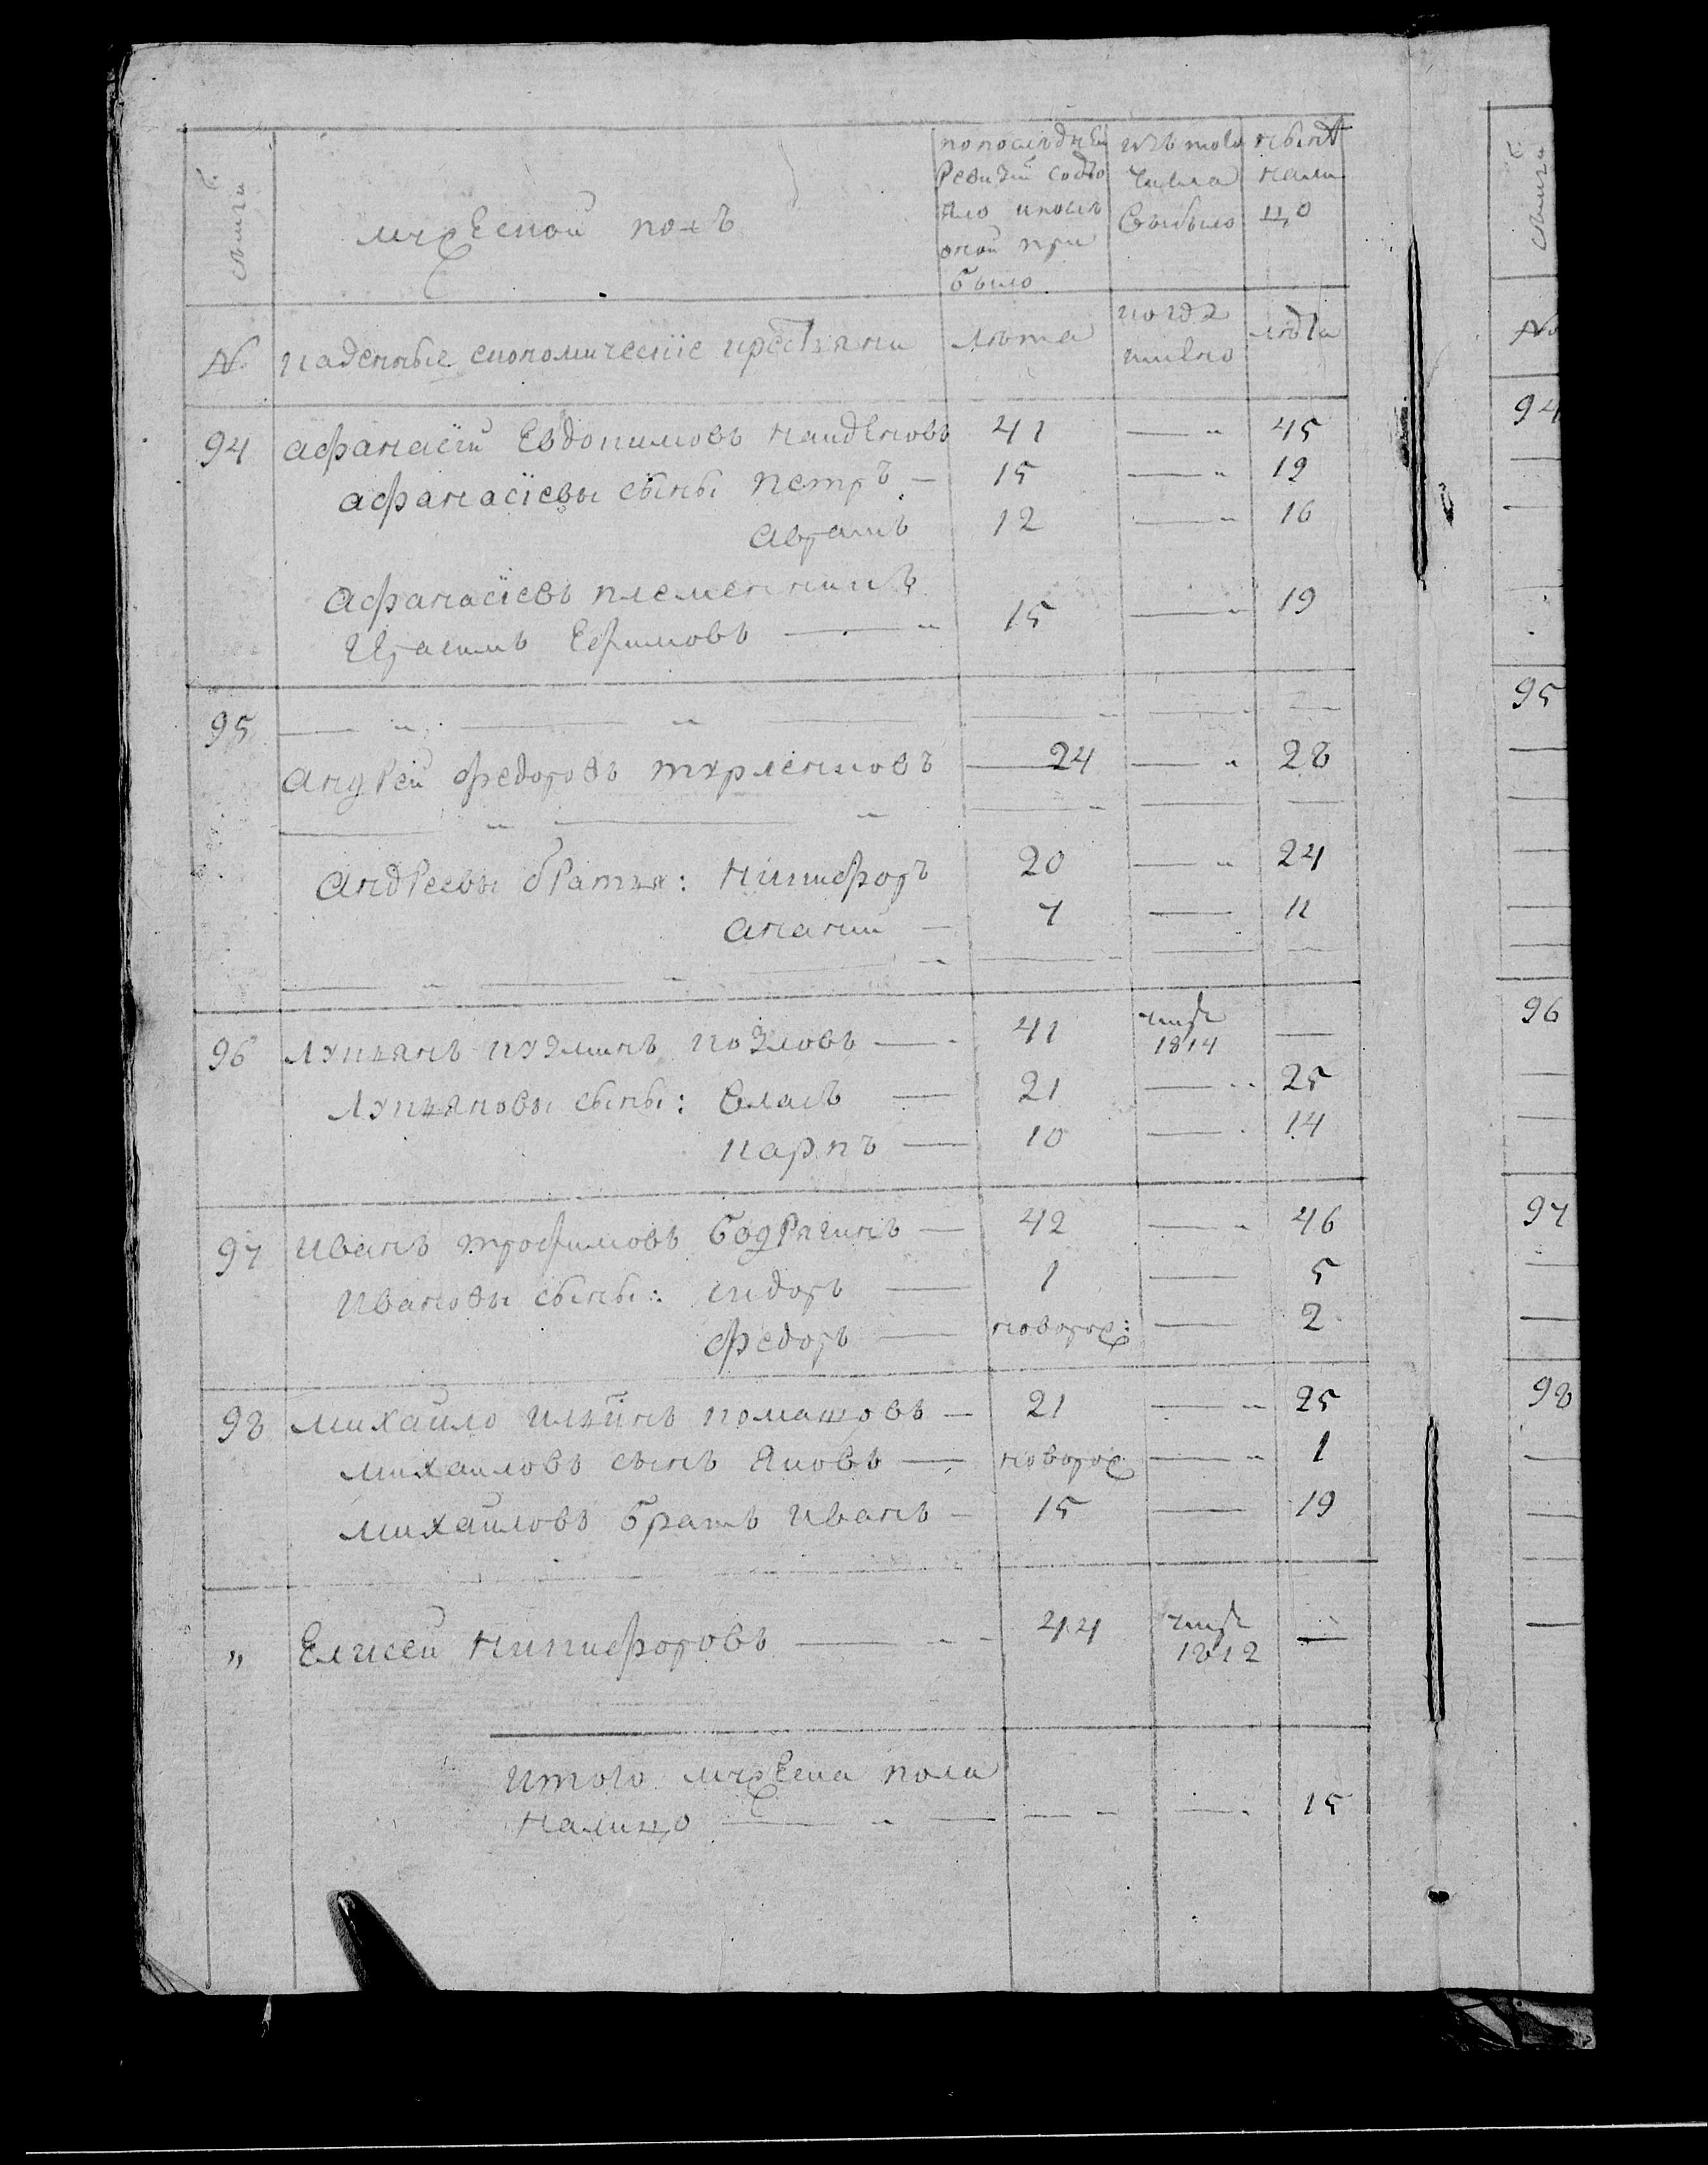 мужеской полъ
попоследней
Ревизїи состо
яло ипосле
оной при
было
изъ того
числа
Выбыло
ныне
нали
цо
№
казенные економическїе крестьяни
лета
когда
имянно
лета
94 афанасїй Евдокимовъ наиденовъ 41 — 45
афанасїевы сыны петръ — 15 — 19
аврамъ 12 — 16
афанасїевъ племенникъ
Ефимовъ — 15 — 19
95
андрей федоровъ турленковъ — 24 — 28
андреевы братья: никифоръ 20 — 24
ананий — 7 — 11
96 Лукьянъ кузминъ козловъ — 41 умре 1814 —
Лукьяновы сыны: власъ — 21 — 25
карпъ — 10 — 14
97 иванъ трофимовъ бодрягинъ — 42 — 46
ивановы сыны: сидоръ — 1 — 5
федоръ — новорож: — 2
98 михайло ильинъ — 21 — 25
михаиловъ сынъ яковъ — новорож — 1
михаиловъ братъ иванъ — 15 — 19
" Елисей никифоровъ — 44 умре 1812 —
итого мужеска пола
налицо — 15
№
94
95
96
97
98